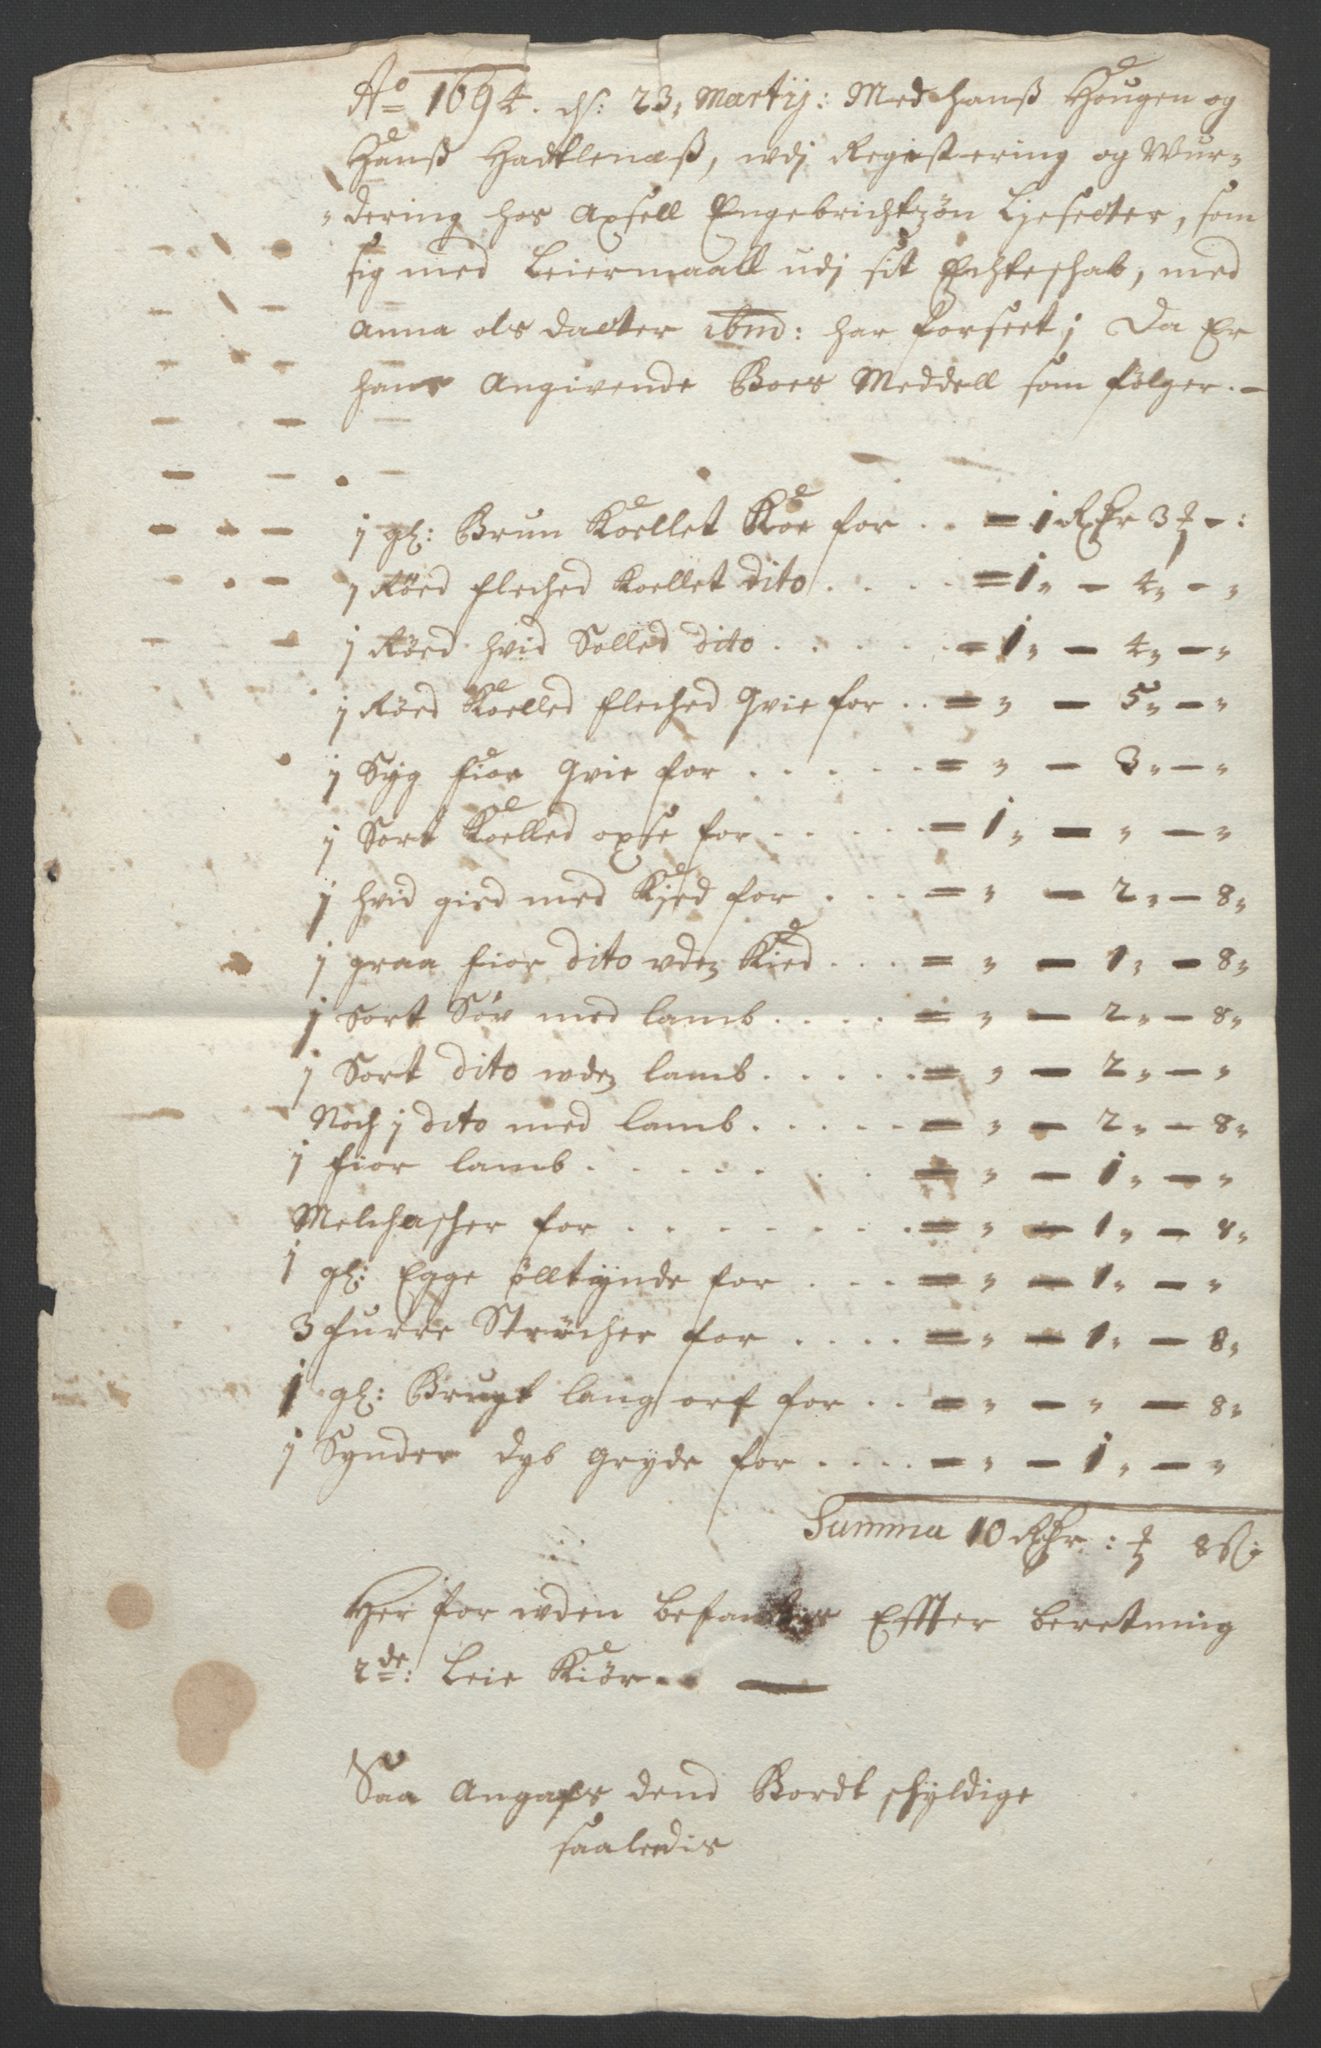 Ao 1694. ds: 23, Martij: Med hanß Hougen og
Hanß Hadtlenæß, wdj Registering og Wur-
-dering hos Axsell Engebrichtzøn Ljesetter, som
sig med Leiermaall udj sit Echteschab, med
Anna ols dactter ibm: har forseet; Da Er
hans Angivende Boes Meddell som følger. -
j gl: Brun Koellet Koe for . . = 1 Rdr 3 ꝝ - :
j Røed fleched Koellet dito . . . . = 1" - 4" - "
j Røed hvid Sølled dito . . . . . = 1" - 4" - "
j Røed Koelled fleched Qvie for . . = " - 5" - "
j Syg fior Qvie for . . . . . = " - 3" - "
j Sort Koelled oxse for . . . . . = 1" - " - "
j hvid gied med Kied for . . . = " - 2" - 8"
j graa fior dito uden Kied . . . = " - 1" - 8"
j Sort Søv med lamb . . . . = " - 2" - 8"
j Sort dito uden lamb . . . . . = " - 2" - "
Noch j dito med lamb . . . . . = " - 2" - 8"
j fior lamb . . . . . . = " - 1" - "
Melchascher for . . . . . . . = " - 1" - 8"
j gl: Egge ølltynde for . . . = " - 1" - "
3 furre Strøcher for . . . . = " - 1" - 8"
j gl: Brugt lang orf for . . = " - " - 8"
j Synder dyb Gryde for . . . . = " - 1" - "
Summa 10 Rdr : ꝝ 8 ß:
Her for uden befantes Effter beretning
2de: Leie Kiør. -
Saa Angafs dend Bordt schyldige
saaledis